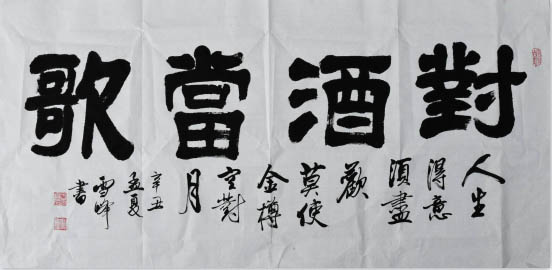 對酒當歌
人生
得意
須盡
歡
莫使
金樽
空對
月
辛丑
孟夏
雪峰
書